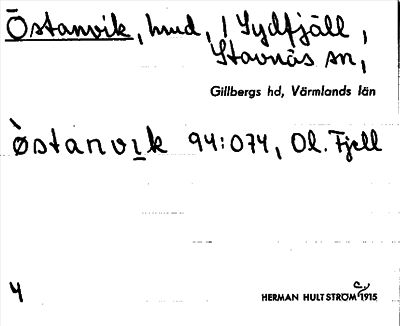 Östanvik, hmd, i Sydfjäll,
Stavnäs sn,
Gillbergs hd, Värmlands län
òstanvik 94:074, Ol. Fjell
4
HERMAN HULTSTRÖM 1915